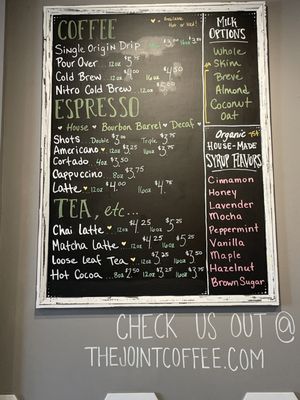 COFFEE
♥ = Available Hot or Iced!
Single Origin Drip 12oz $3.00
Pour Over 12oz $3.75
Cold Brew 12oz $4.00 16oz $4.50
Nitro Cold Brew 12oz $5.00
ESPRESSO
♥ House ♥ Bourbon Barrel ♥ Decaf ♥
Shots Double $3.00 Triple $3.75
Americano ♥ 12oz $3.25 16oz $3.75
Cortado 4oz $3.50
Cappuccino 8oz $3.75
Latte ♥ 12oz $4.00 16oz $4.75
TEA, etc...
Chai latte ♥ 12oz $4.25 16oz $5.25
Matcha Latte ♥ 12oz $4.25 16oz $5.25
Loose leaf Tea ♥ 12oz $2.75 16oz $3.50
Hot Cocoa 8oz $2.50 12oz $3.25 16oz $3.75
MILK OPTIONS
Whole
Skim
Brevé
Almond
Coconut
Oat
Organic 75¢
HOUSE-MADE
SYRUP FLAVORS
Cinnamon
Honey
Lavender
Mocha
Peppermint
Vanilla
Maple
Hazelnut
Brown Sugar
CHECK US OUT @
THEJOINTCOFFEE.COM